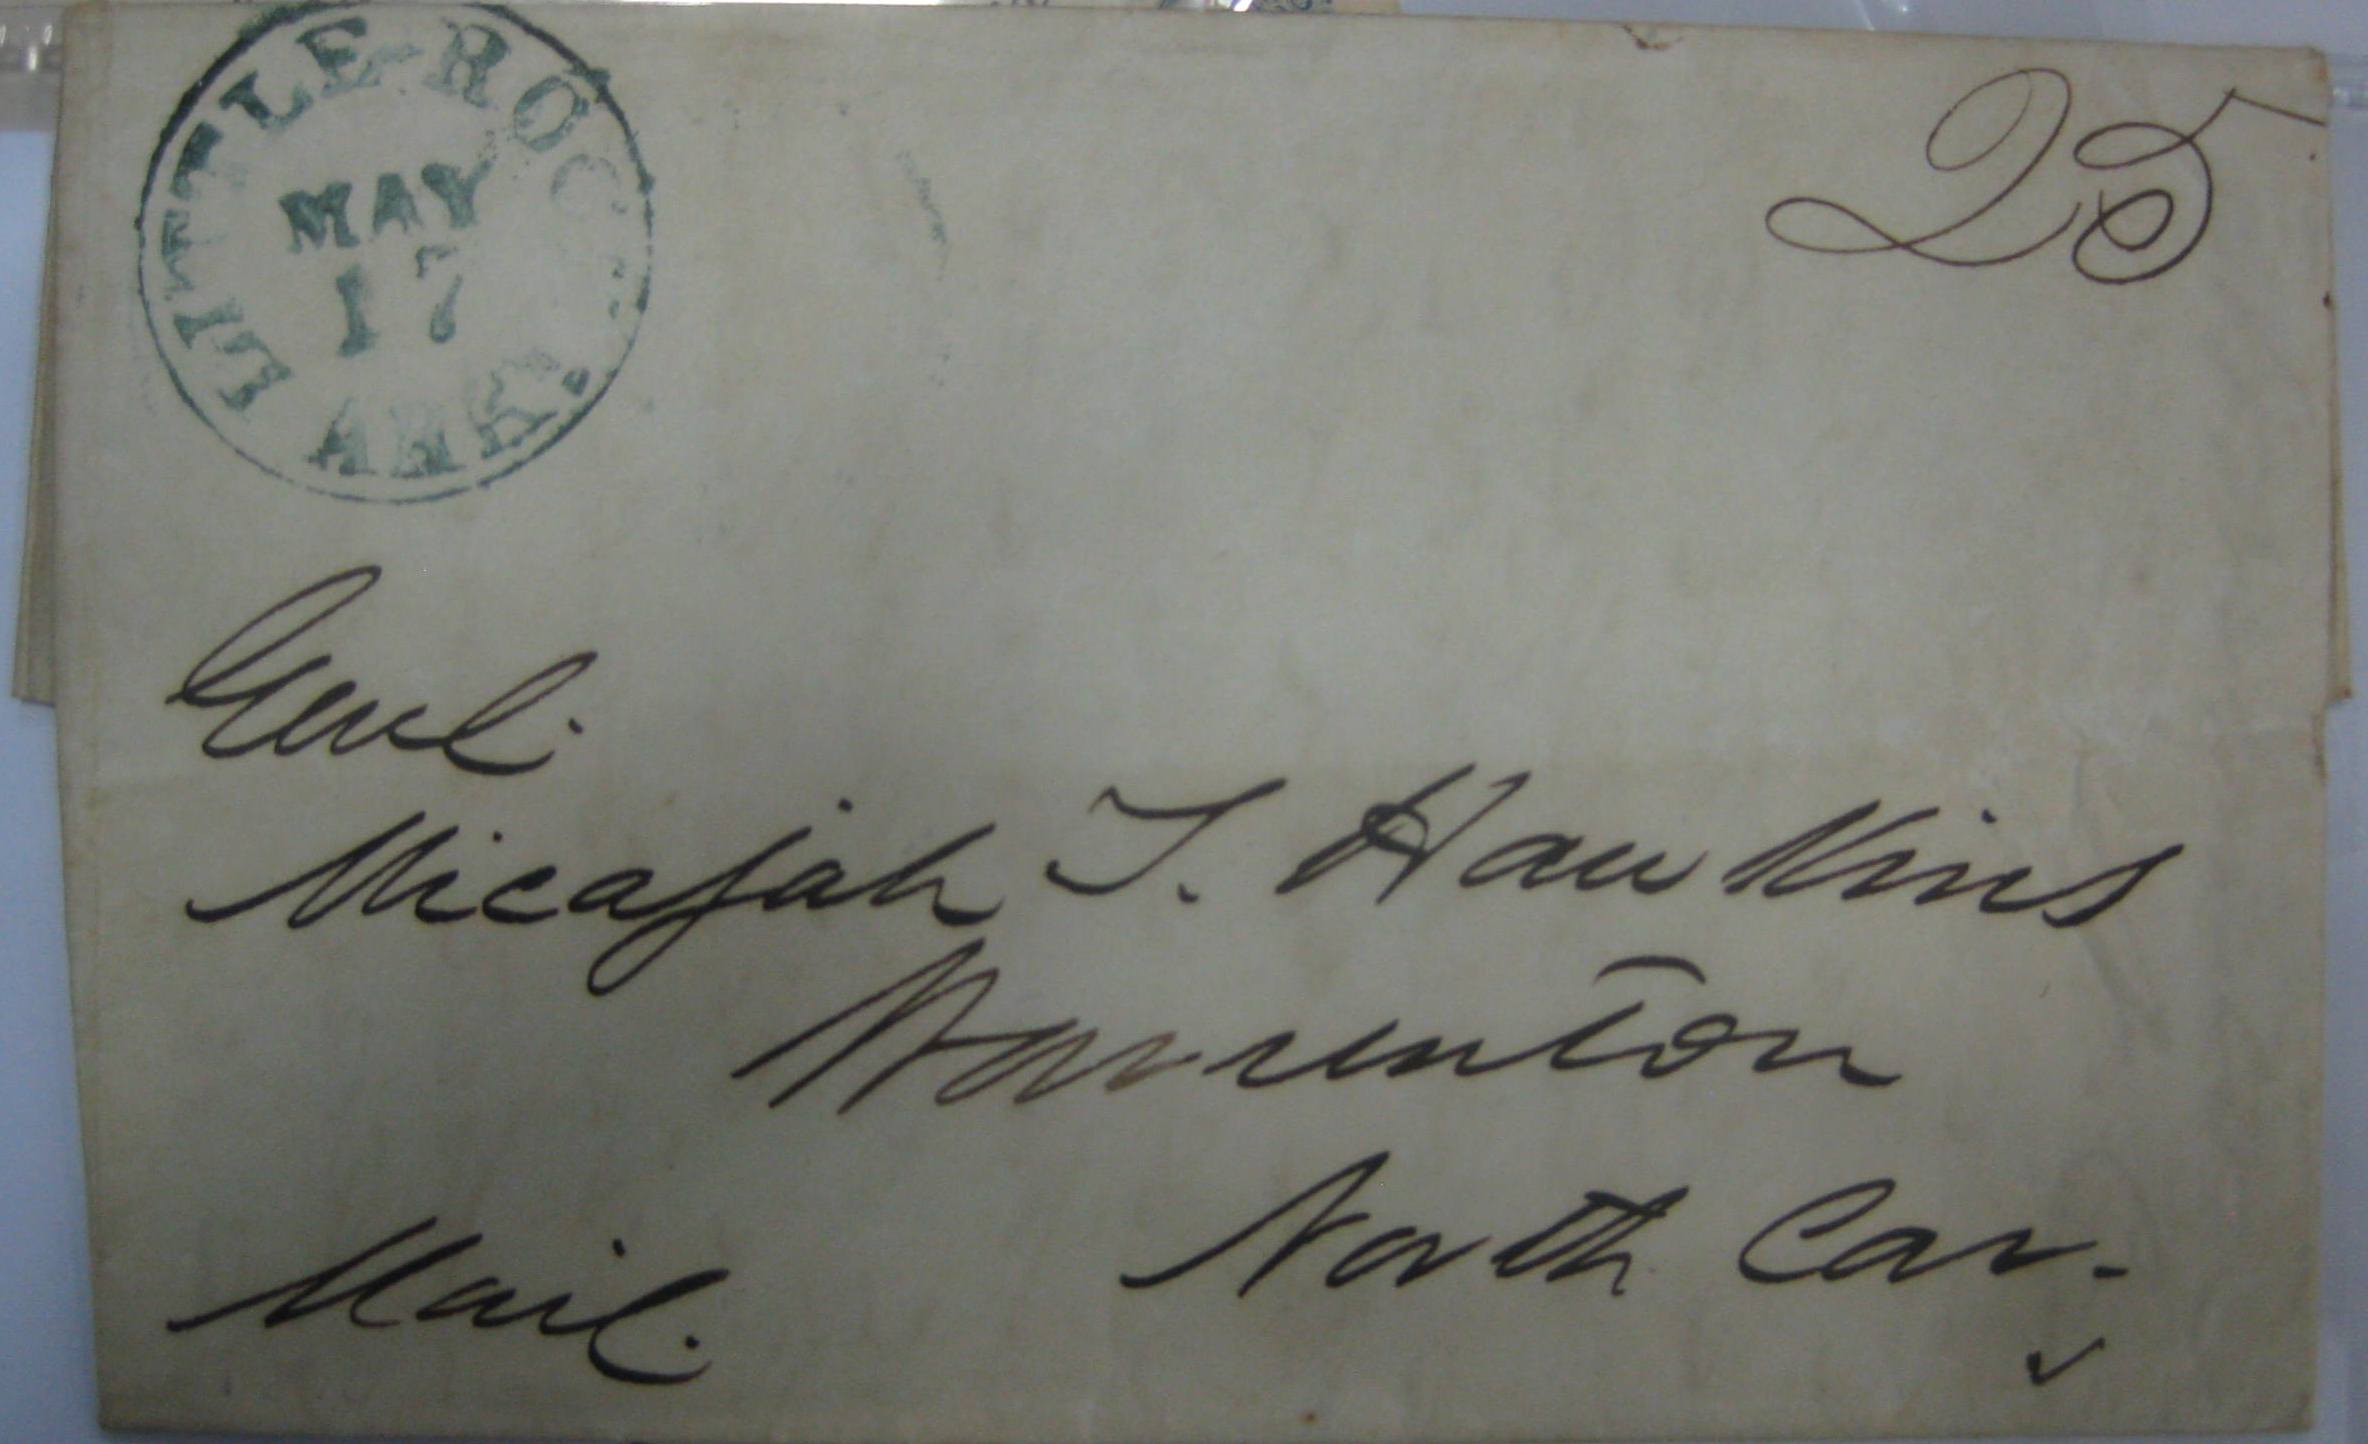 LITTLE-ROCK
ARK.
MAY
17
25
Genl.
Micajah T. Hawkins
Warrenton
North Car.
Mail.